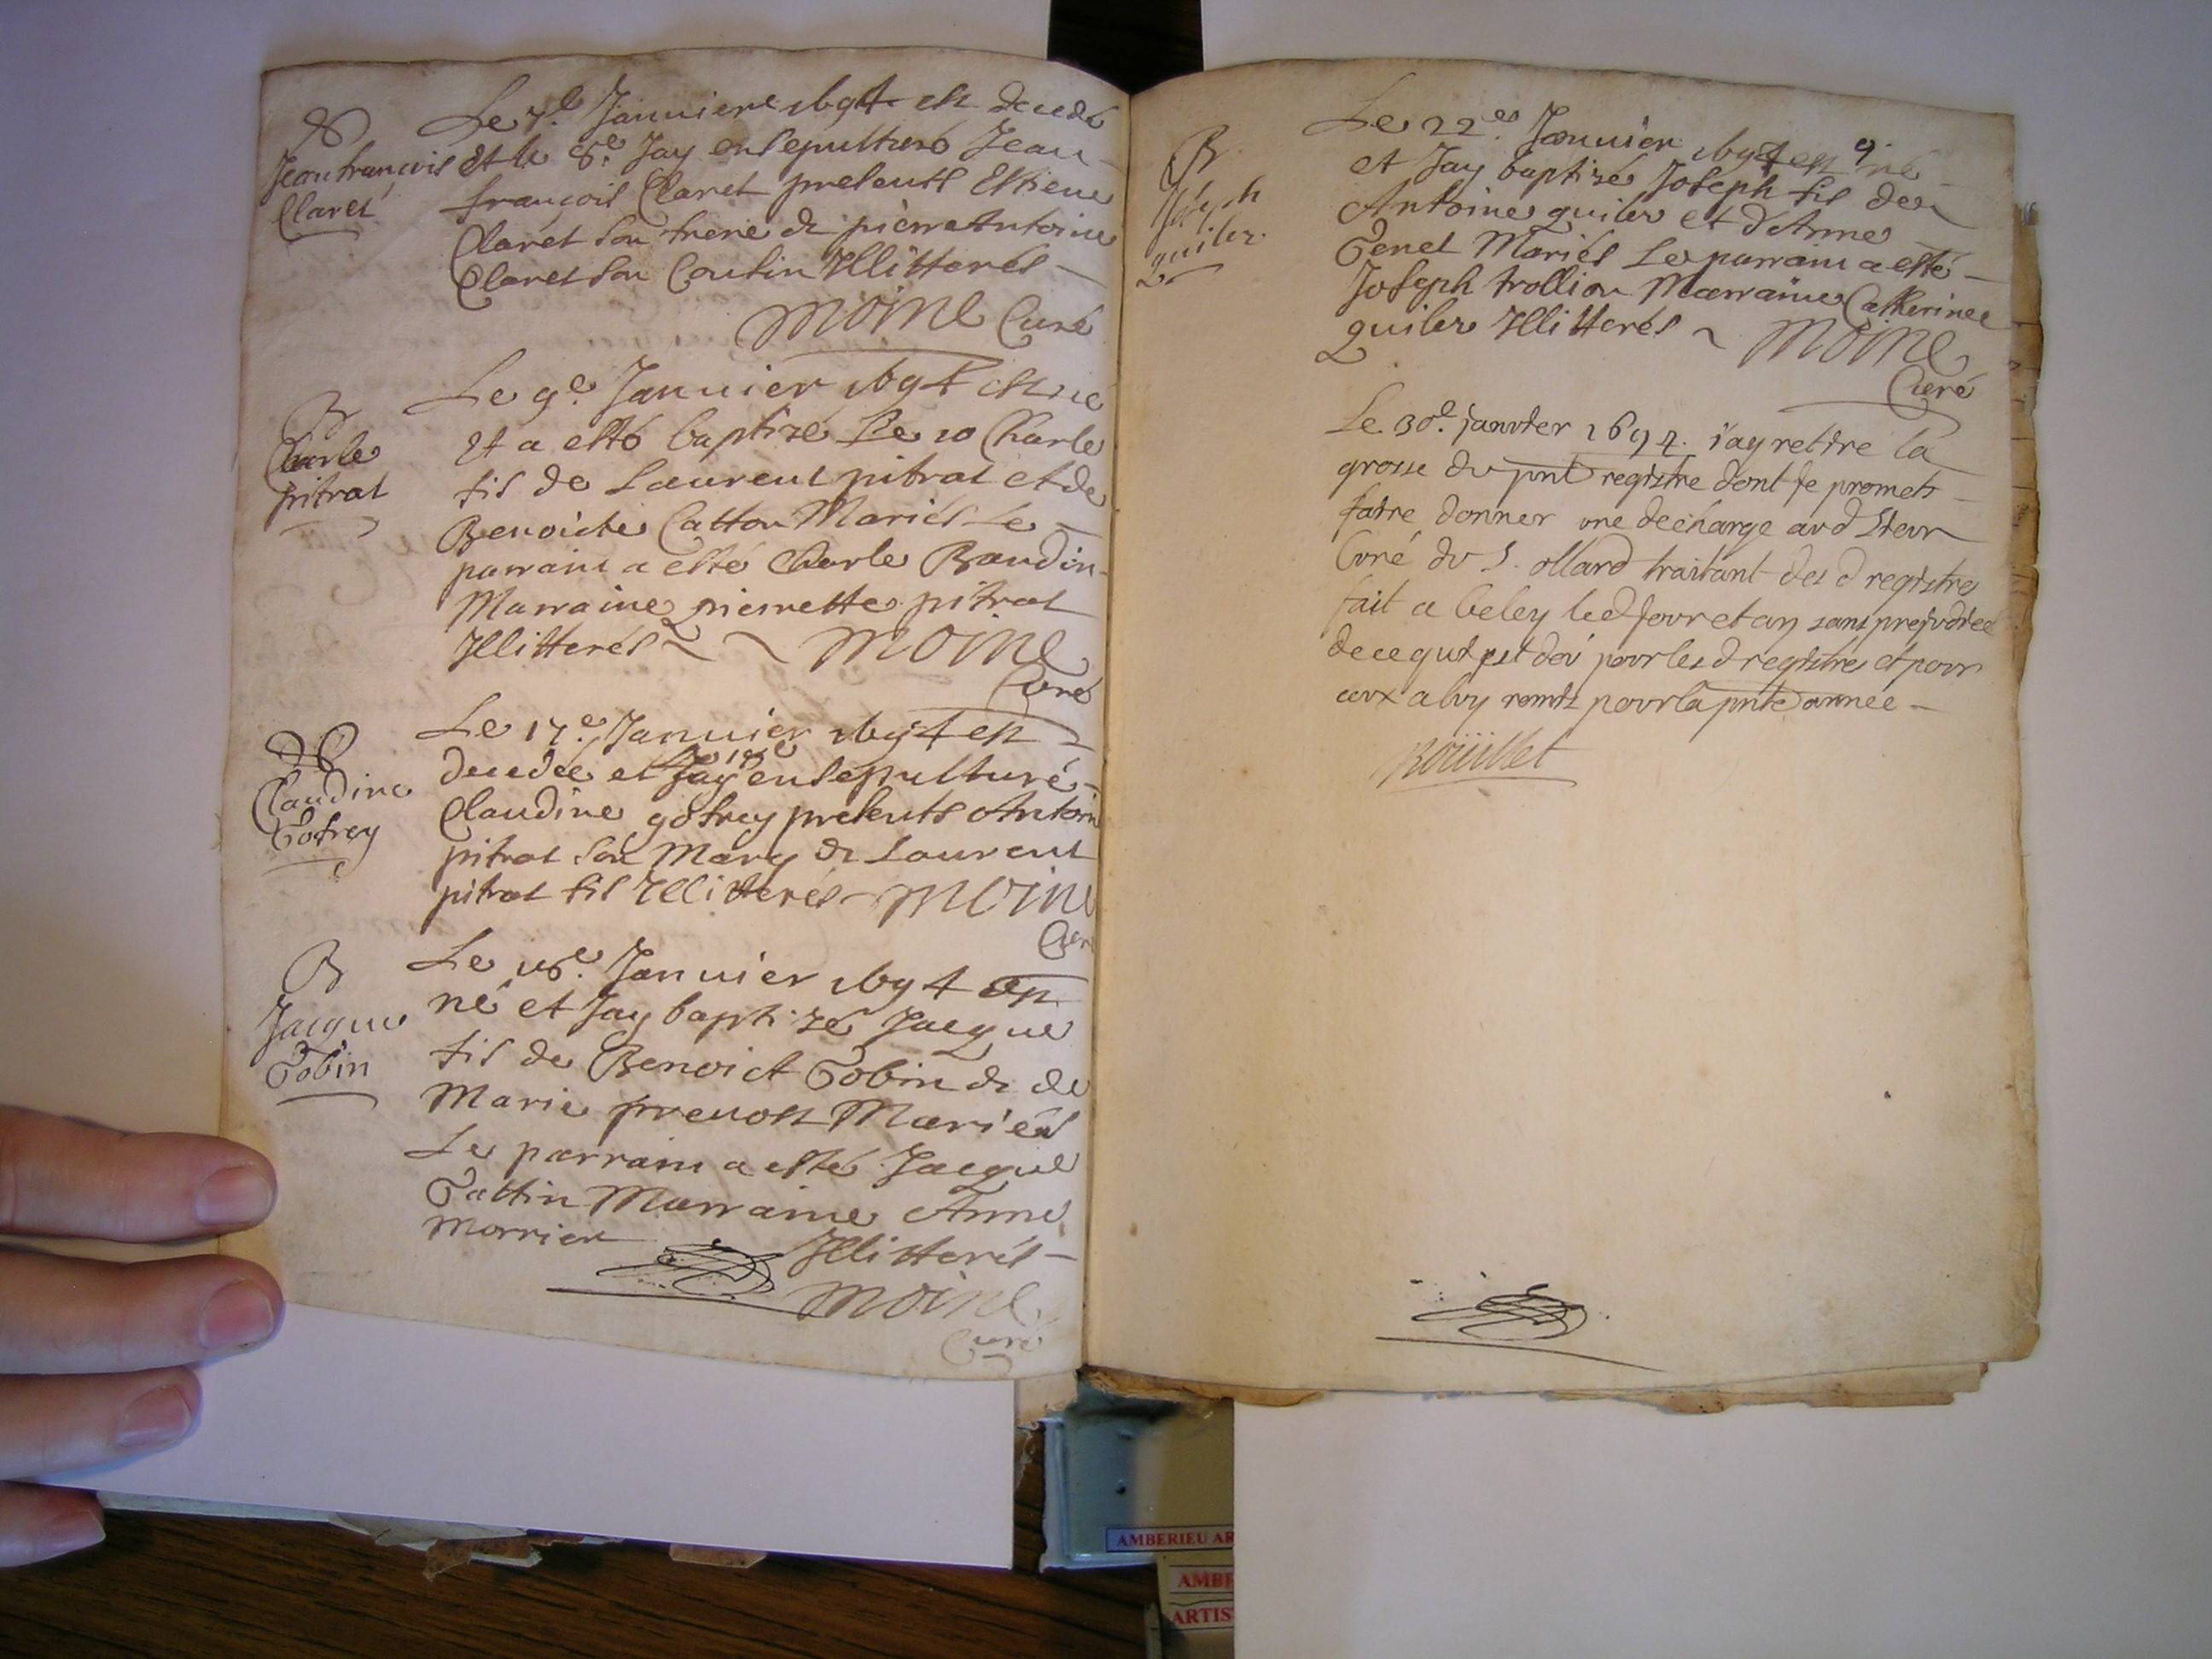 Jean francois
Claret
Le 7.e Januiere 1694 est decedé
Et le 8.e Jay ensepulturé Jean
françois Claret presents Estiene
Claret son frere & pierre Antoine
Claret son Cousin Illitterés
Moine Curé
B
Charle
pitrat
Le 9.e Januier 1694 est né
Et a esté baptizé Le 10 Charle
fis de Laurent pitrat et de
Benoicte Catton Mariés Le
parrain a esté Charle Baudin
Marraine pierrette pitrat
Illitterés Moine
Curé
Claudine
Gofrey
Le 17.e Januier 1694 est
decedée et Jay ensepulturé
Claudine gofrey presents Antoin
pitrat son Mary & Laurent
pitrat fis Illitterés Moine
Cur
B
Jacque
Gobin
Le 18.e Januier 1694 est
né et Jay baptizé Jacque
fis de Benoict Gobin & de
Marie preuost Mariés
Le parrain a esté Jacque
Gattin Marraine Anne
Morrier Illitterés
Moine
Curé
9
B
Joseph
guiler
Le 22.e Januier 1694 est né
et Jay baptizé Joseph fis de
Antoine guiler et d'Anne
Genet Mariés Le parrain a esté
Joseph trollion Marraine Catherine
guiler Illitterés Moine
Curé
Le 30.e janvier 1694. j'ay retire la
grosse du pnt registre dont je promets
faire donner une decharge aud Sieur
Curé du S. ollard traitant des d registres
fait a beley led jour et an sans prejudice
de ce qui est deu pour les d registres et pour
ceux a luy remis pour la pnte année
Roüillet
AMBERIEU AR
AMBE
ARTIS